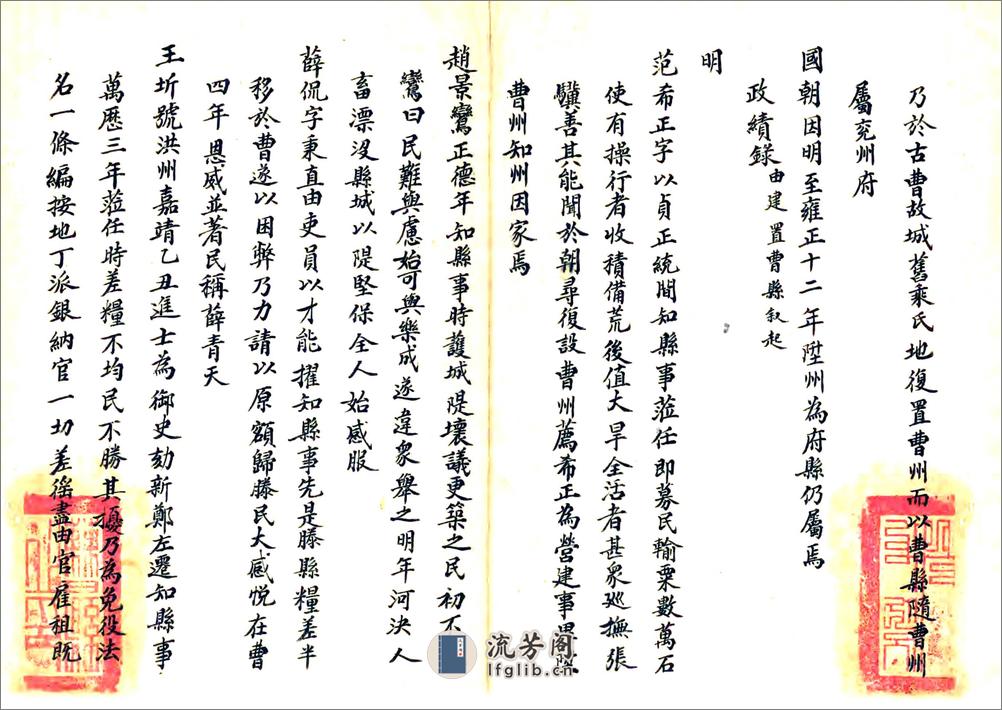 乃於古曹故城舊乘氏地復置曹州而以曹縣隨曹州
屬兖州府
國朝因明至雍正十二年陞州為府縣仍屬焉
政績錄由建置曹縣叙起
明
范希正字以貞正統間知縣事蒞任即募民輸粟數萬石
使有操行者收積備荒後值大旱全活者甚衆巡撫張
驥善其能聞於朝尋復設曹州薦希正為營建事畢陞
曹州知州因家焉
趙景鸞正德年知縣事時護城隄壞議更築之民初不
鸞曰民難與慮始可與樂成遂違衆舉之明年河決人
畜漂没縣城以隄堅保全人始感服
薛侃字秉直由吏員以才能擢知縣事先是滕縣糧差半
移於曹遂以困弊乃力請以原額歸滕民大感悦在曹
四年恩威並著民稱薛青天
王圻號洪州嘉靖乙丑進士為御史劾新鄭左遷知縣事
萬歷三年蒞任時差糧不均民不勝其擾乃為免役法
名一條編按地丁派銀納官一切差徭盡由官雇祖既
流芳阁
lfglib.cn